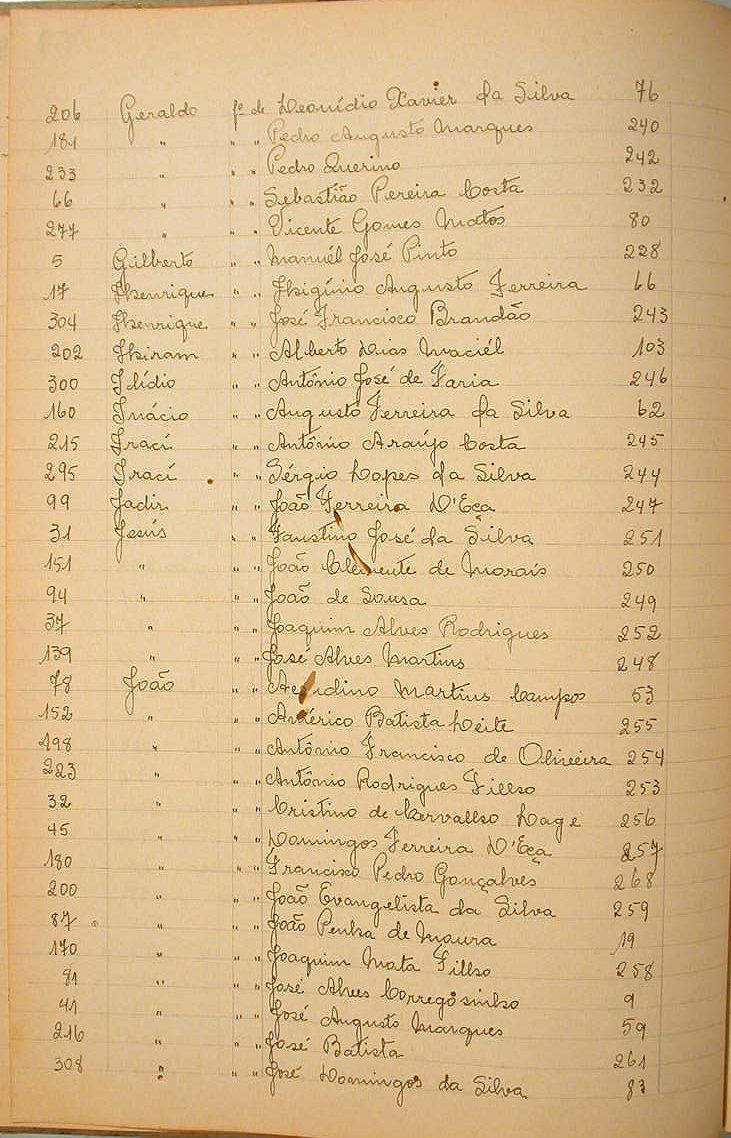 206 Geraldo fº de Leonídio Xavier da Silva 76
181 " " " Pedro Augusto Marques 240
233 " " " Pedro Querino 242
66 " " " Sebastião Pereira Costa 232
277 " " " Vicente Gomes Matos 80
5 Gilberto " " Manuél José Pinto 228
17 Henrique " " Higínio Augusto Ferreira 66
304 Henrique " " José Francisco Brandão 243
202 Hiram " " Alberto Dias Maciél 103
300 Ilídio " " Antônio José de Faria 246
160 Inácio " " Augusto Ferreira da Silva 62
215 Iraci " " Antônio Araújo Costa 245
295 Iraci " " Sérgio Lopes da Silva 244
99 Jadir " " João Ferreira D'Eça 247
31 Jesús " " Faustino José da Silva 251
151 " " " João Clemente de Morais 250
94 " " " João de Sousa 249
37 " " " Joaquim Alves Rodrigues 252
139 " " " José Alves Martins 248
78 João " " Martins Campos 53
152 " " " Américo Batista Leite 255
198 " " " Antônio Francisco de Oliveira 254
223 " " " Antônio Rodrigues Filho 253
32 " " " Cristino de Carvalho Lage 256
45 " " " Domingos Ferreira D'Eça 257
180 " " " Francisco Pedro Gonçalves 268
200 " " " João Evangelista da Silva 259
87 " " " João Penha de Moura 19
170 " " " Joaquim Mata Filho 258
81 " " " José Alves Corregosinho 9
41 " " " José Augusto Marques 59
216 " " " José Batista 261
308 " " " José Domingos da Silva 83